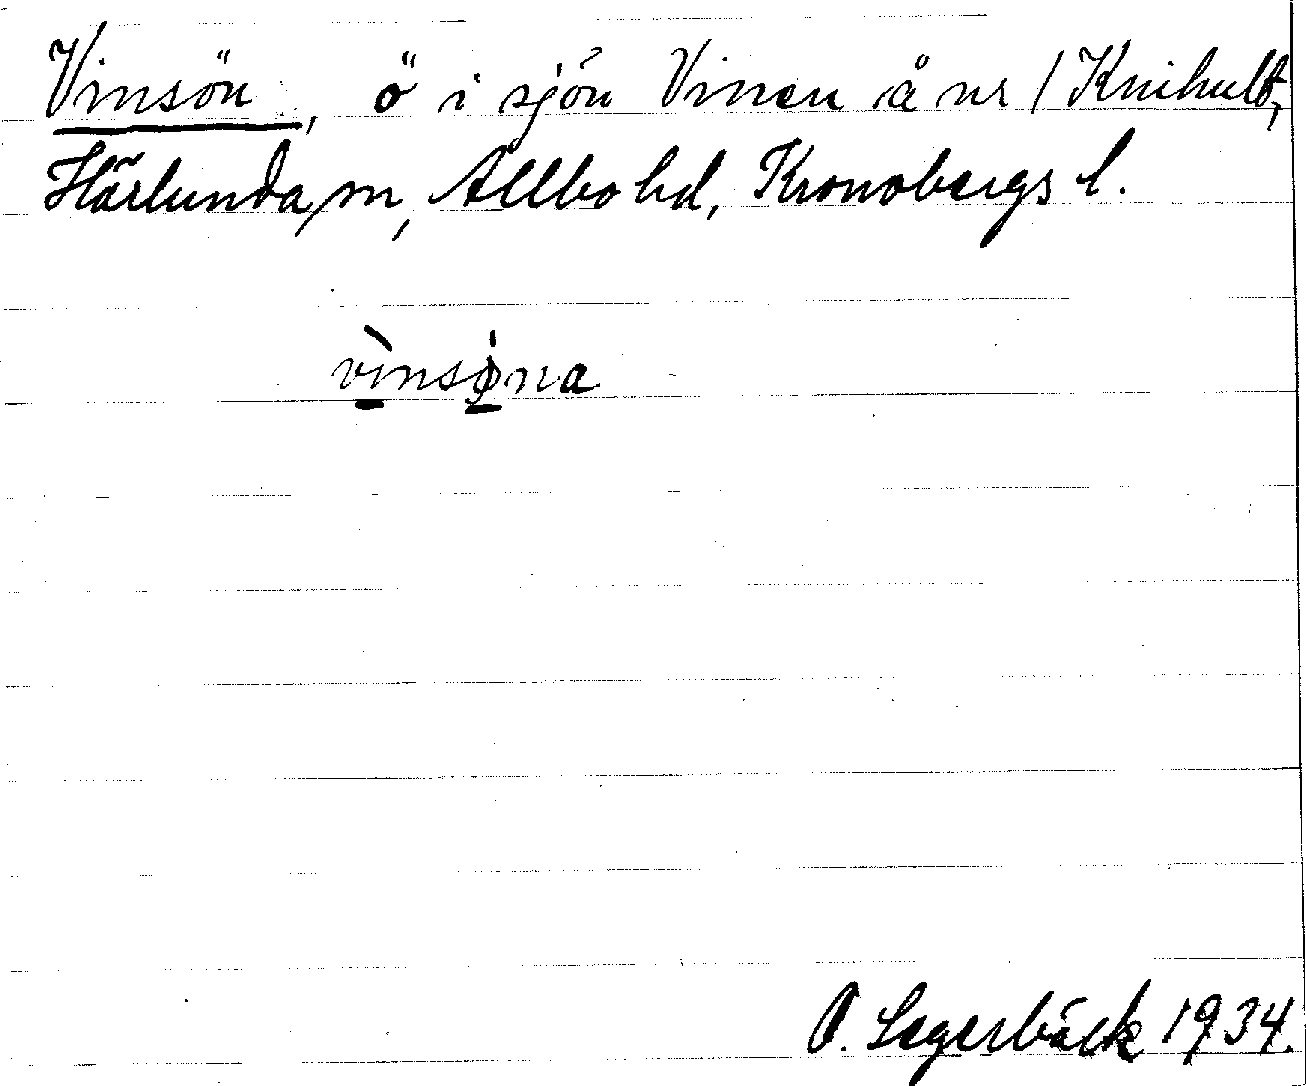 Vinsön, ö i sjön Vinen å nr 1 Knihult,
Härlunda sn, Allbo hd, Kronobergs l.
vìnsø̀na
O. Segerbäck 1934.